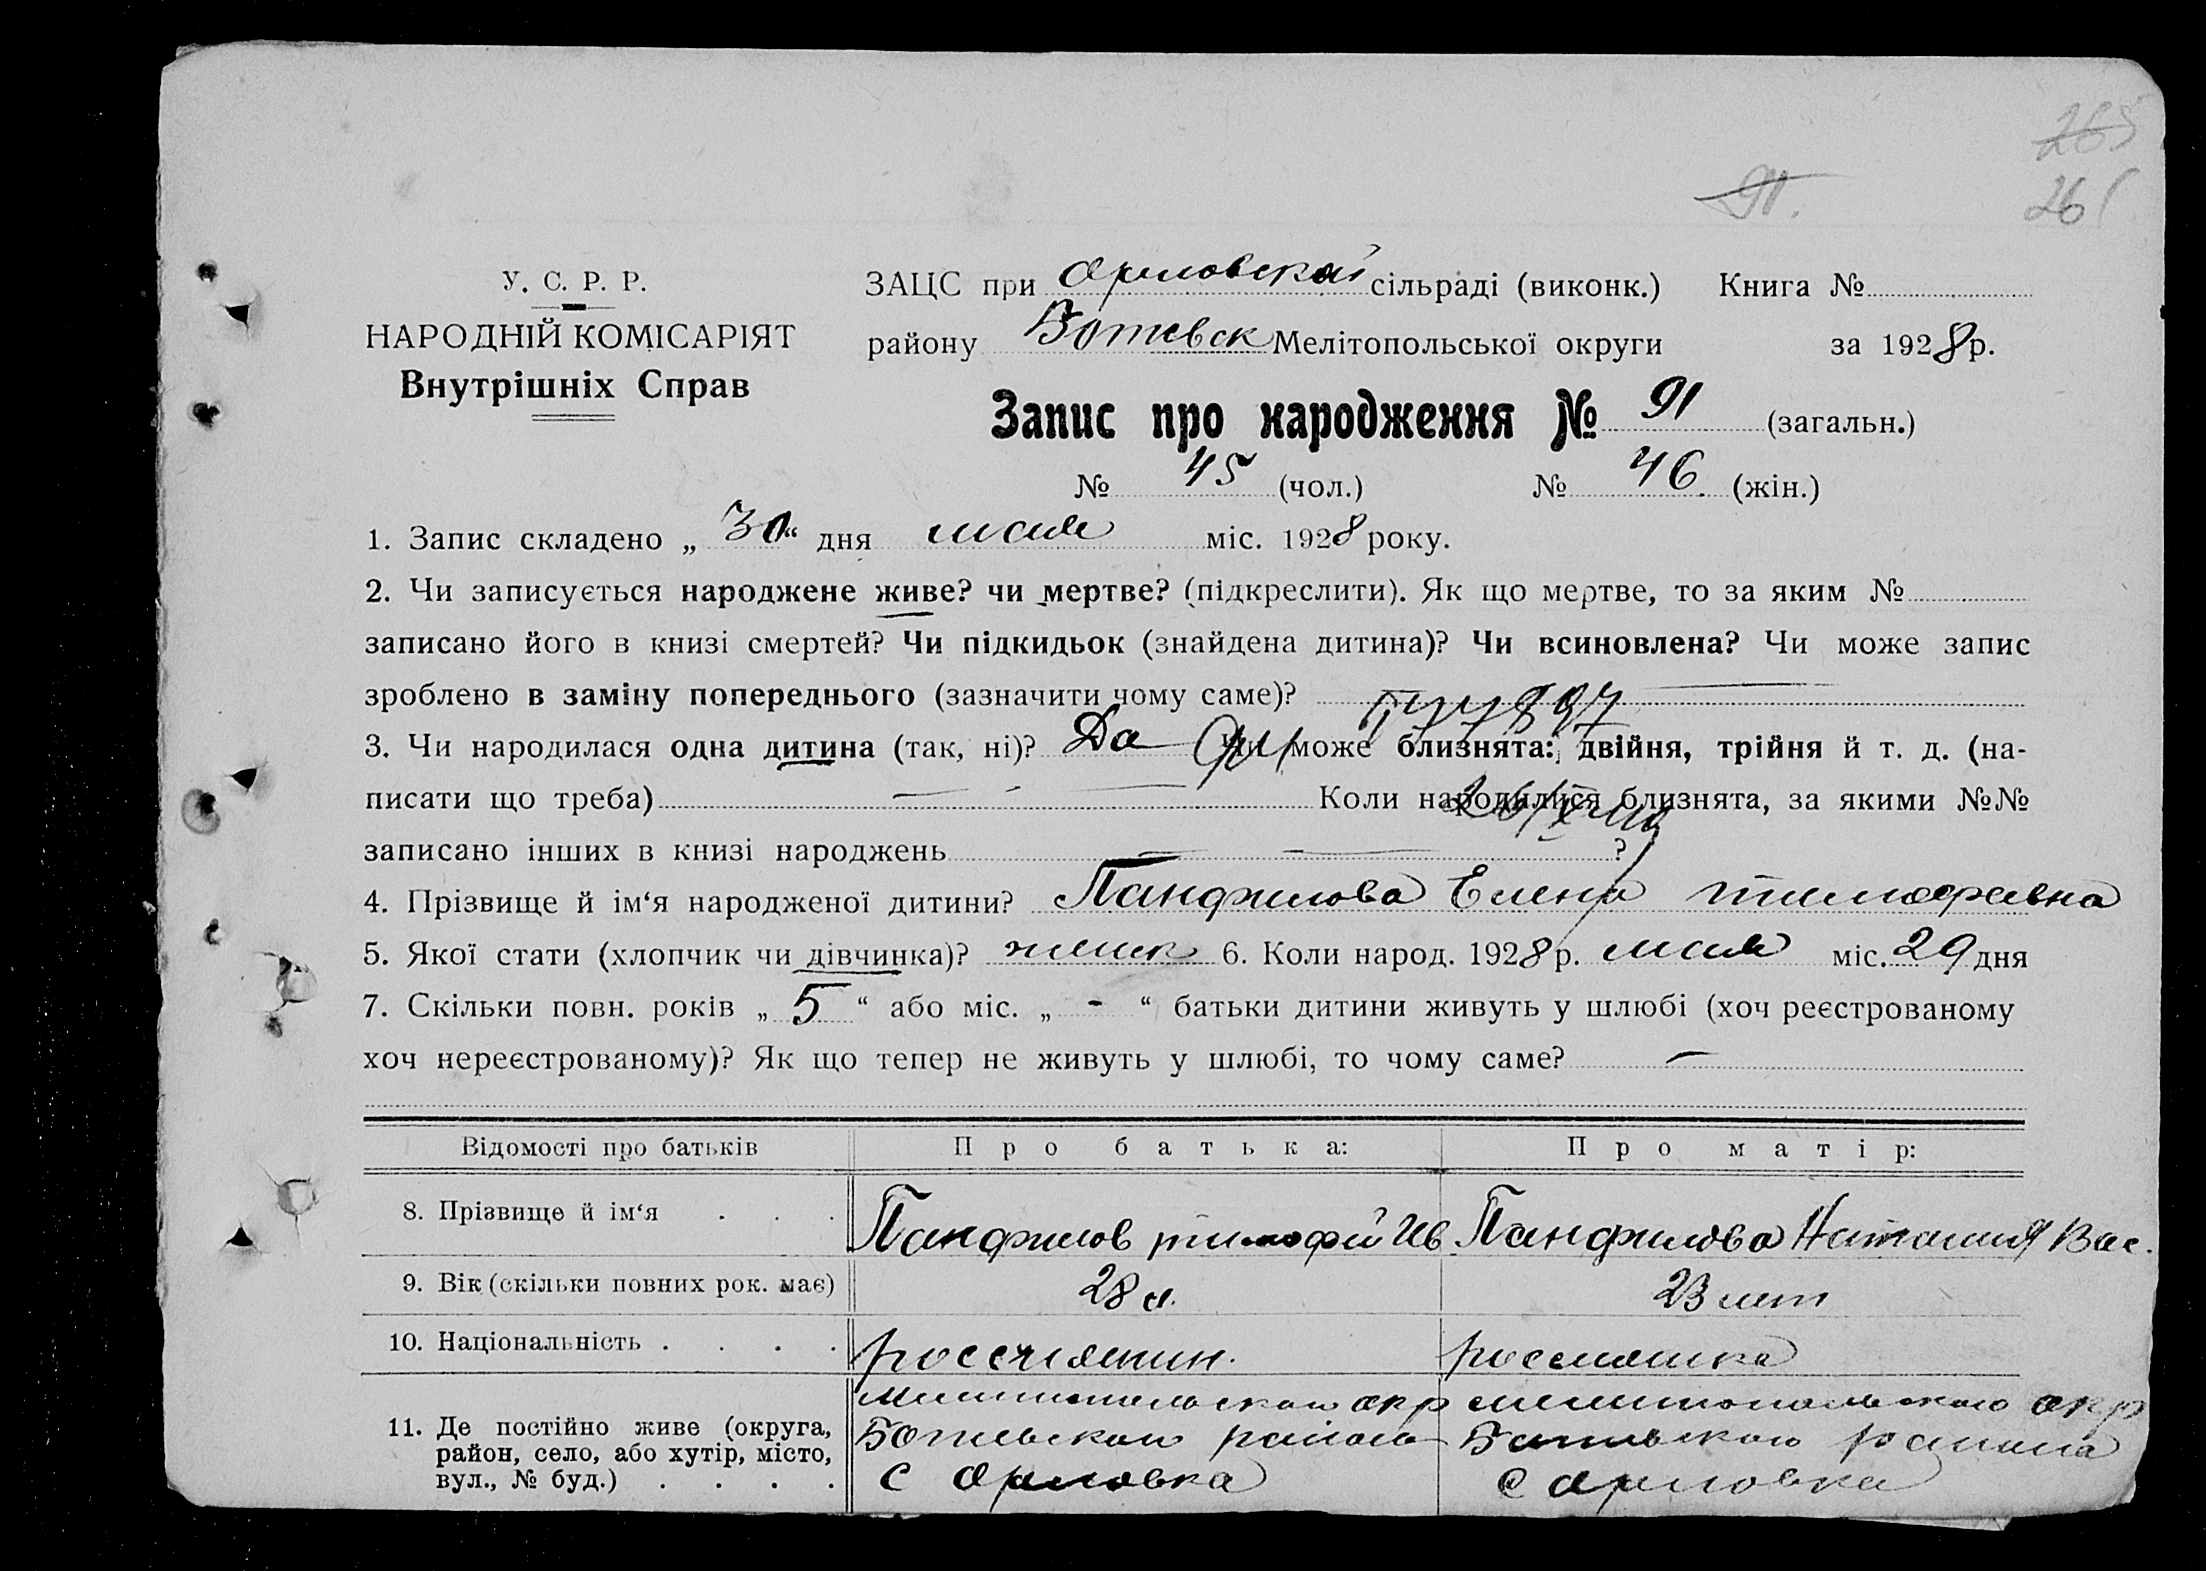 265
261
91.
У. С. Р. Р.
ЗАЦС при Орловской сільраді (виконк.) Книга №
НАРОДНІЙ КОМІСАРІЯТ
району Ботевск Мелітопольської округи за 1928 р.
Внутрішніх Справ
Запис про народження № 91 (загальн.)
№ 45 (чол.) № 46. (жін.)
1. Запис складено „ 30 “ дня мая міс. 1928 року.
2. Чи записується народжене живе? чи мертве? (підкреслити). Як що мертве, то за яким №
записано його в книзі смертей? Чи підкидьок (знайдена дитина)? Чи всиновлена? Чи може запис
зроблено в заміну попереднього (зазначити чому саме)?
3. Чи народилася одна дитина (так, ні)? Да Чи може близнята: двійня, трійня й т. д. (на-
писати що треба) Коли народилися близнята, за якими №№
записано інших в книзі народжень ?
4. Прізвище й ім‘я народженої дитини? Панфилова Елена Тимофеевна
5. Якої стати (хлопчик чи дівчинка)? женск 6. Коли народ. 1928 р. мая міс. 29 дня
7. Скільки повн. років „ 5 “ або міс. „ - “ батьки дитини живуть у шлюбі (хоч реєстрованому
хоч нереєстрованому)? Як що тепер не живуть у шлюбі, то чому саме? —
Відомості про батьків Про батька: Про матір:
8. Прізвище й ім‘я . . . Панфилов Тимофей Ив Панфилова Наталия Вас.
9. Вік (скільки повних рок. має) 28 л. 23 лет
10. Національність . . . . россиянин. россиянка
Мелитопольского окр мелитопольского окр
11. Де постійно живе (округа, Ботевского района Ботевского района
район, село, або хутір, місто,
вул., № буд.) . . . . с Орловка с Орловка